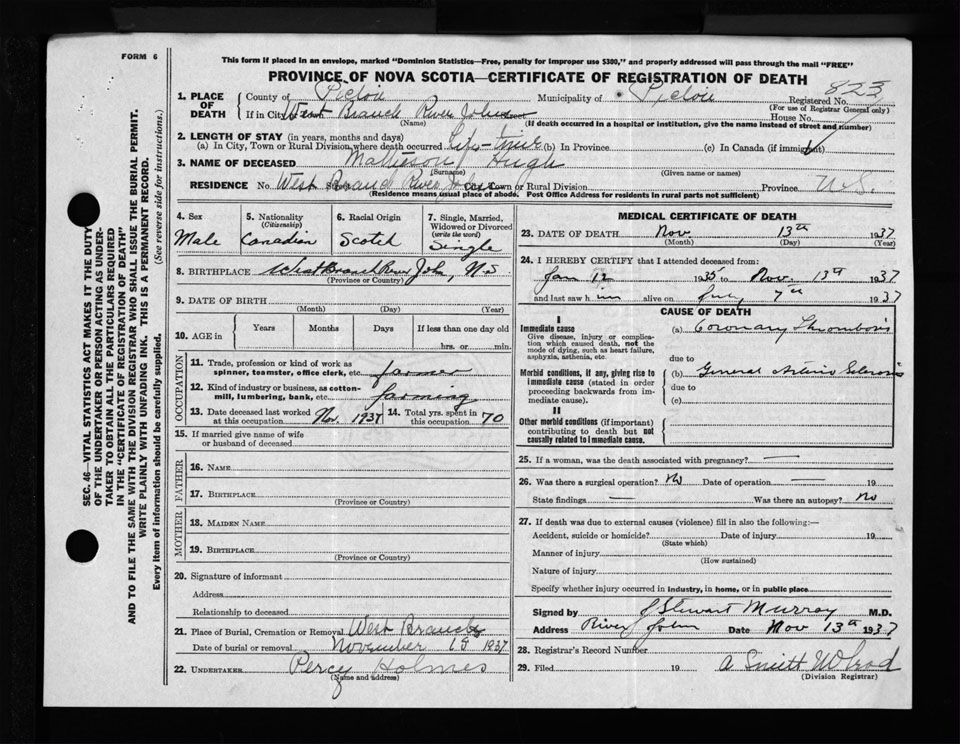 FORM 6
This form if placed in an envelope, marked "Dominion Statistics—Free, penalty for improper use $300," and properly addressed will pass through the mail "FREE"
PROVINCE OF NOVA SCOTIA—CERTIFICATE OF REGISTRATION OF DEATH
1. PLACE OF DEATH County of Pictou Municipality of Pictou Registered No. 823
(For use of Registrar General only)
If in City West Branch River John House No.
(Name) (If death occurred in a hospital or institution, give the name instead of street and number)
2. LENGTH OF STAY (in years, months and days)
(a) In City, Town or Rural Division where death occurred Life-time (b) In Province (c) In Canada (if immigrant)
3. NAME OF DECEASED Hugh
(Surname) (Given name or names)
RESIDENCE No. West Branch River John City, Town or Rural Division Province N.S.
(Residence means usual place of abode. Post Office Address for residents in rural parts not sufficient)
4. Sex 5. Nationality (Citizenship) 6. Racial Origin 7. Single, Married, Widowed or Divorced (write the word)
Male Canadian Scotch Single
8. BIRTHPLACE West Branch River John, N.S
(Province or Country)
9. DATE OF BIRTH
(Month) (Day) (Year)
10. AGE in Years Months Days If less than one day old
hrs. or min.
OCCUPATION
11. Trade, profession or kind of work as spinner, teamster, office clerk, etc. farmer
12. Kind of industry or business, as cotton-mill, lumbering, bank, etc. farming
13. Date deceased last worked at this occupation Nov. 1937 14. Total yrs. spent in this occupation 70
15. If married give name of wife or husband of deceased
FATHER
16. NAME
17. BIRTHPLACE
(Province or Country)
MOTHER
18. MAIDEN NAME
19. BIRTHPLACE
(Province or Country)
20. Signature of informant
Address
Relationship to deceased
21. Place of Burial, Cremation or Removal West Branch
Date of burial or removal November 15 1937
22. UNDERTAKER Percy Holmes
(Name and address)
MEDICAL CERTIFICATE OF DEATH
23. DATE OF DEATH Nov. 13th 1937
(Month) (Day) (Year)
24. I HEREBY CERTIFY that I attended deceased from:
Jan 12 1935 to Nov. 13th 1937
and last saw him alive on 7th 1937
CAUSE OF DEATH
I
Immediate cause (a) Coronary Thrombosis
Give disease, injury or complication which caused death, not the mode of dying, such as heart failure, asphyxia, asthenia, etc.
due to
Morbid conditions, if any, giving rise to immediate cause (stated in order proceeding backwards from immediate cause). (b) General Arterio Sclerosis
due to
(c)
II
Other morbid conditions (if important) contributing to death but not causally related to immediate cause.
25. If a woman, was the death associated with pregnancy? —
26. Was there a surgical operation? No Date of operation — 19
State findings — Was there an autopsy? No
27. If death was due to external causes (violence) fill in also the following:—
Accident, suicide or homicide? Date of injury 19
(State which)
Manner of injury
(How sustained)
Nature of injury
Specify whether injury occurred in industry, in home, or in public place
Signed by J Stewart Murray M.D.
Address River John Date Nov 13th 1937
28. Registrar's Record Number
29. Filed 19
(Division Registrar)
SEC. 46—VITAL STATISTICS ACT MAKES IT THE DUTY
OF THE UNDERTAKER OR PERSON ACTING AS UNDER-
TAKER TO OBTAIN ALL THE PARTICULARS REQUIRED
IN THE "CERTIFICATE OF REGISTRATION OF DEATH"
AND TO FILE THE SAME WITH THE DIVISION REGISTRAR WHO SHALL ISSUE THE BURIAL PERMIT.
WRITE PLAINLY WITH UNFADING INK. THIS IS A PERMANENT RECORD.
Every item of information should be carefully supplied. (See reverse side for instructions.)